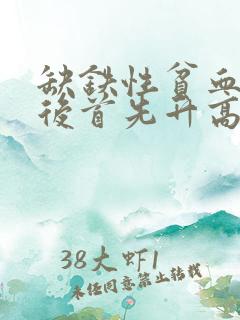 缺铁性贫血
後首先升高
38大虾1
未经同意禁止转载